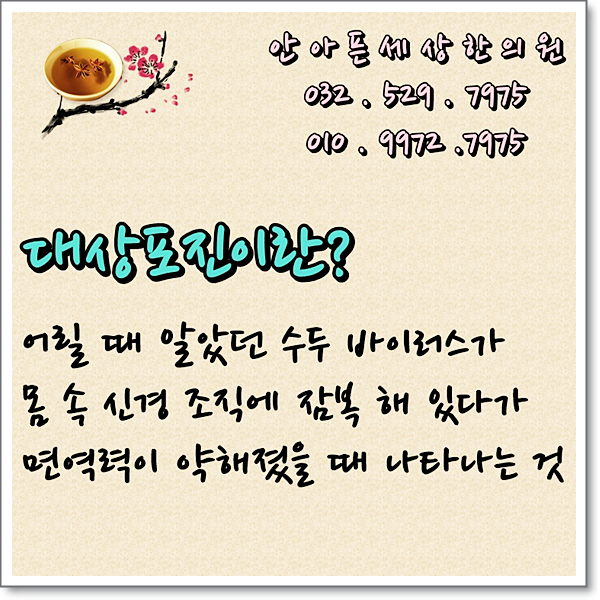 안아픈세상한의원
032 . 529 . 7975
010 . 9972 .7975
대상포진이란?
어릴 때 알았던 수두 바이러스가
몸 속 신경 조직에 잠복 해 있다가
면역력이 약해졌을 때 나타나는 것